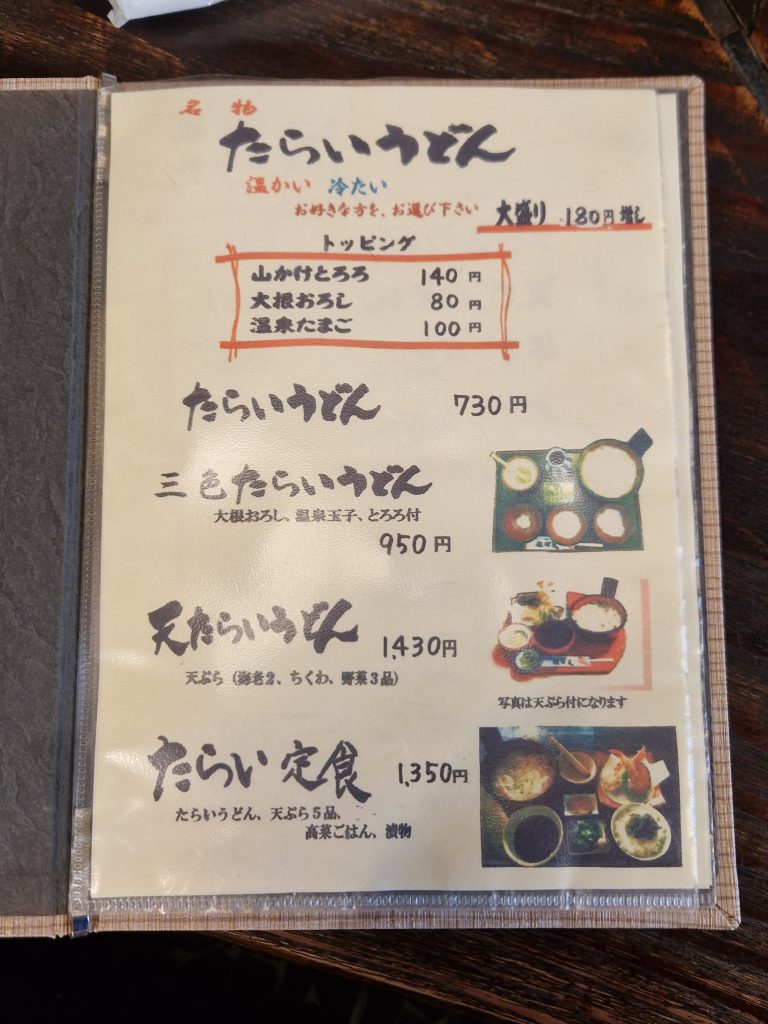 名物
たらいうどん
温かい 冷たい
お好きな方を、お選び下さい
大盛り 180円増し
トッピング
山かけとろろ 140円
大根おろし 80円
温泉たまご 100円
たらいうどん 730円
三色たらいうどん
大根おろし、温泉玉子、とろろ付
950円
天たらいうどん 1,430円
天ぷら（海老2、ちくわ、野菜3品）
写真は天ぷら付になります
たらい定食 1,350円
たらいうどん、天ぷら5品、
高菜ごはん、漬物